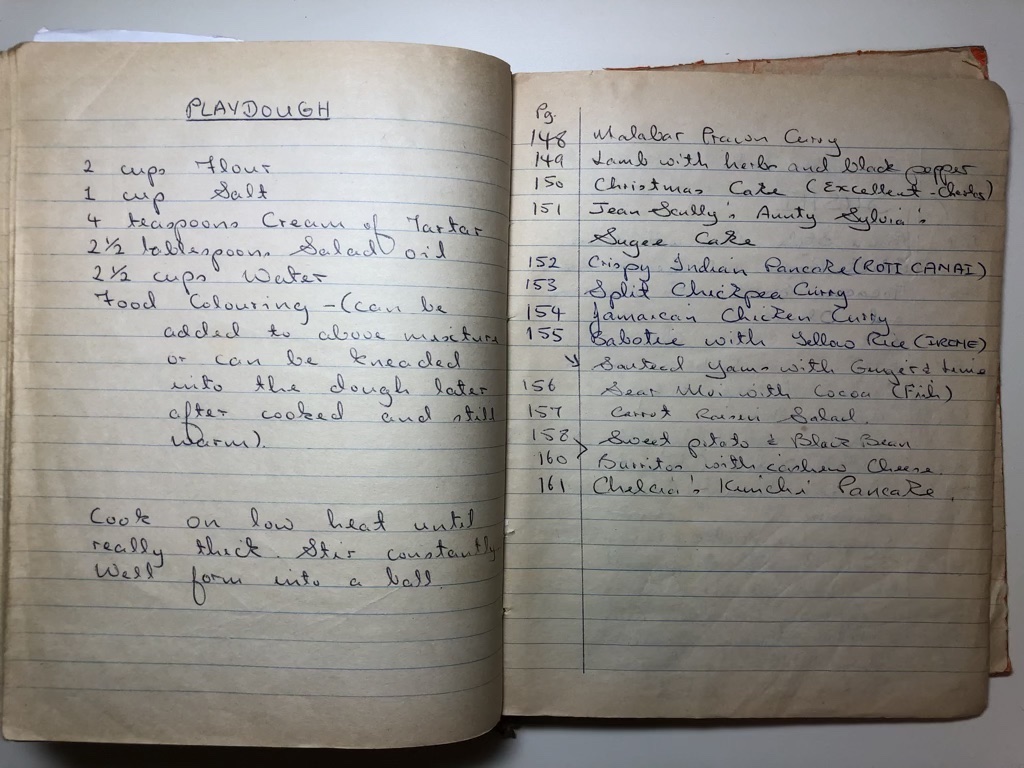 PLAYDOUGH
2 cups Flour
1 cup Salt
4 teaspoons Cream of Tartar
2½ tablespoons Salad oil
2½ cups Water
Food Colouring - (can be
added to above mixture
or can be kneaded
into the dough later
after cooked and still
warm).
Cook on low heat until
really thick. Stir constantly.
Well form into a ball
Pg.
148 Malabar Prawn Curry
149 Lamb with herbs and black pepper
150 Christmas Cake (Excellent - Charles)
151 Jean Scully's Aunty Sylvia's
Sugee Cake
152 Crispy Indian Pancake (ROTI CANAI)
153 Split Chickpea Curry
154 Jamaican Chicken Curry
155 Babotie with Yellow Rice (IREME)
Sauteed Yams with Ginger & Lime
156 with Cocoa (Fish)
157 Carrot Raisin Salad
158 Sweet potato & Black Bean
160 Burritos with cashew Cheese
161 Kimchi Pancake.